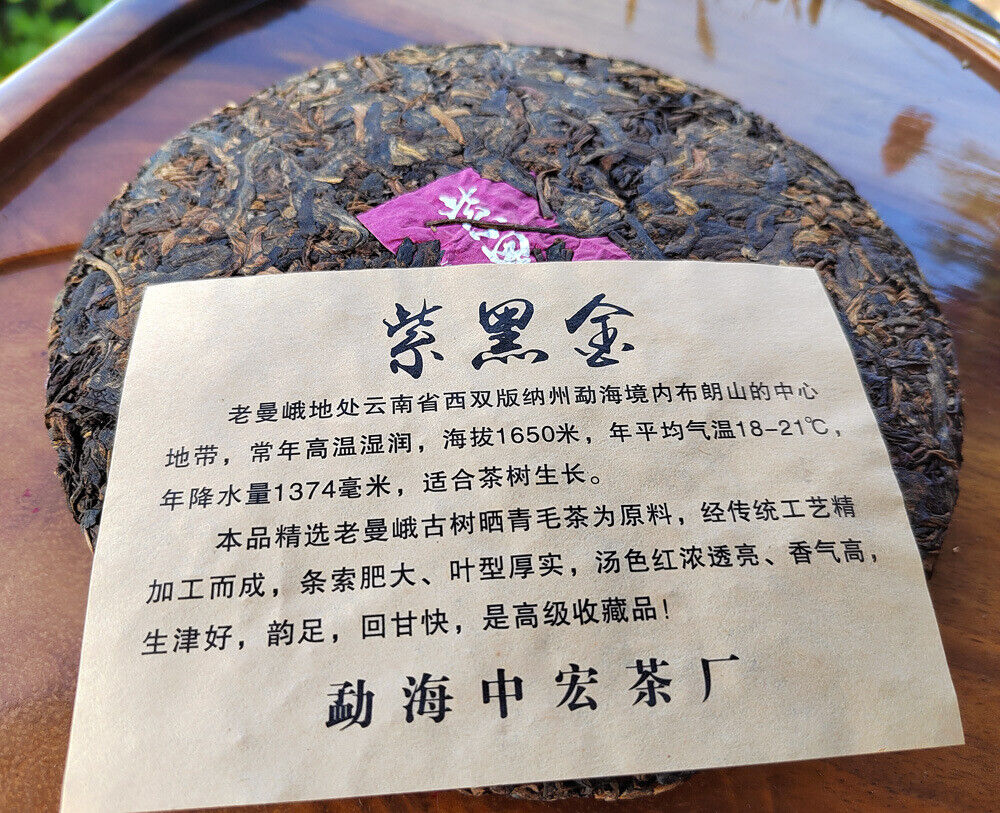 紫黑金
老曼峨地处云南省西双版纳州勐海境内布朗山的中心
地带，常年高温湿润，海拔1650米，年平均气温18-21℃，
年降水量1374毫米，适合茶树生长。
本品精选老曼峨古树晒青毛茶为原料，经传统工艺精
加工而成，条索肥大、叶型厚实，汤色红浓透亮、香气高，
生津好，韵足，回甘快，是高级收藏品！
勐海中宏茶厂